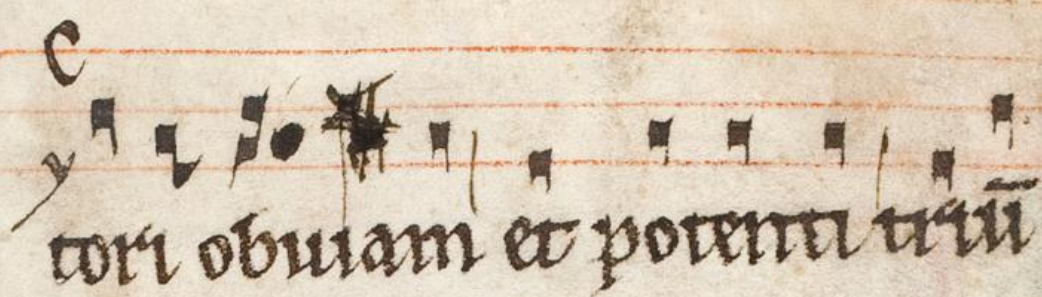 tori obuiam et potenti triū